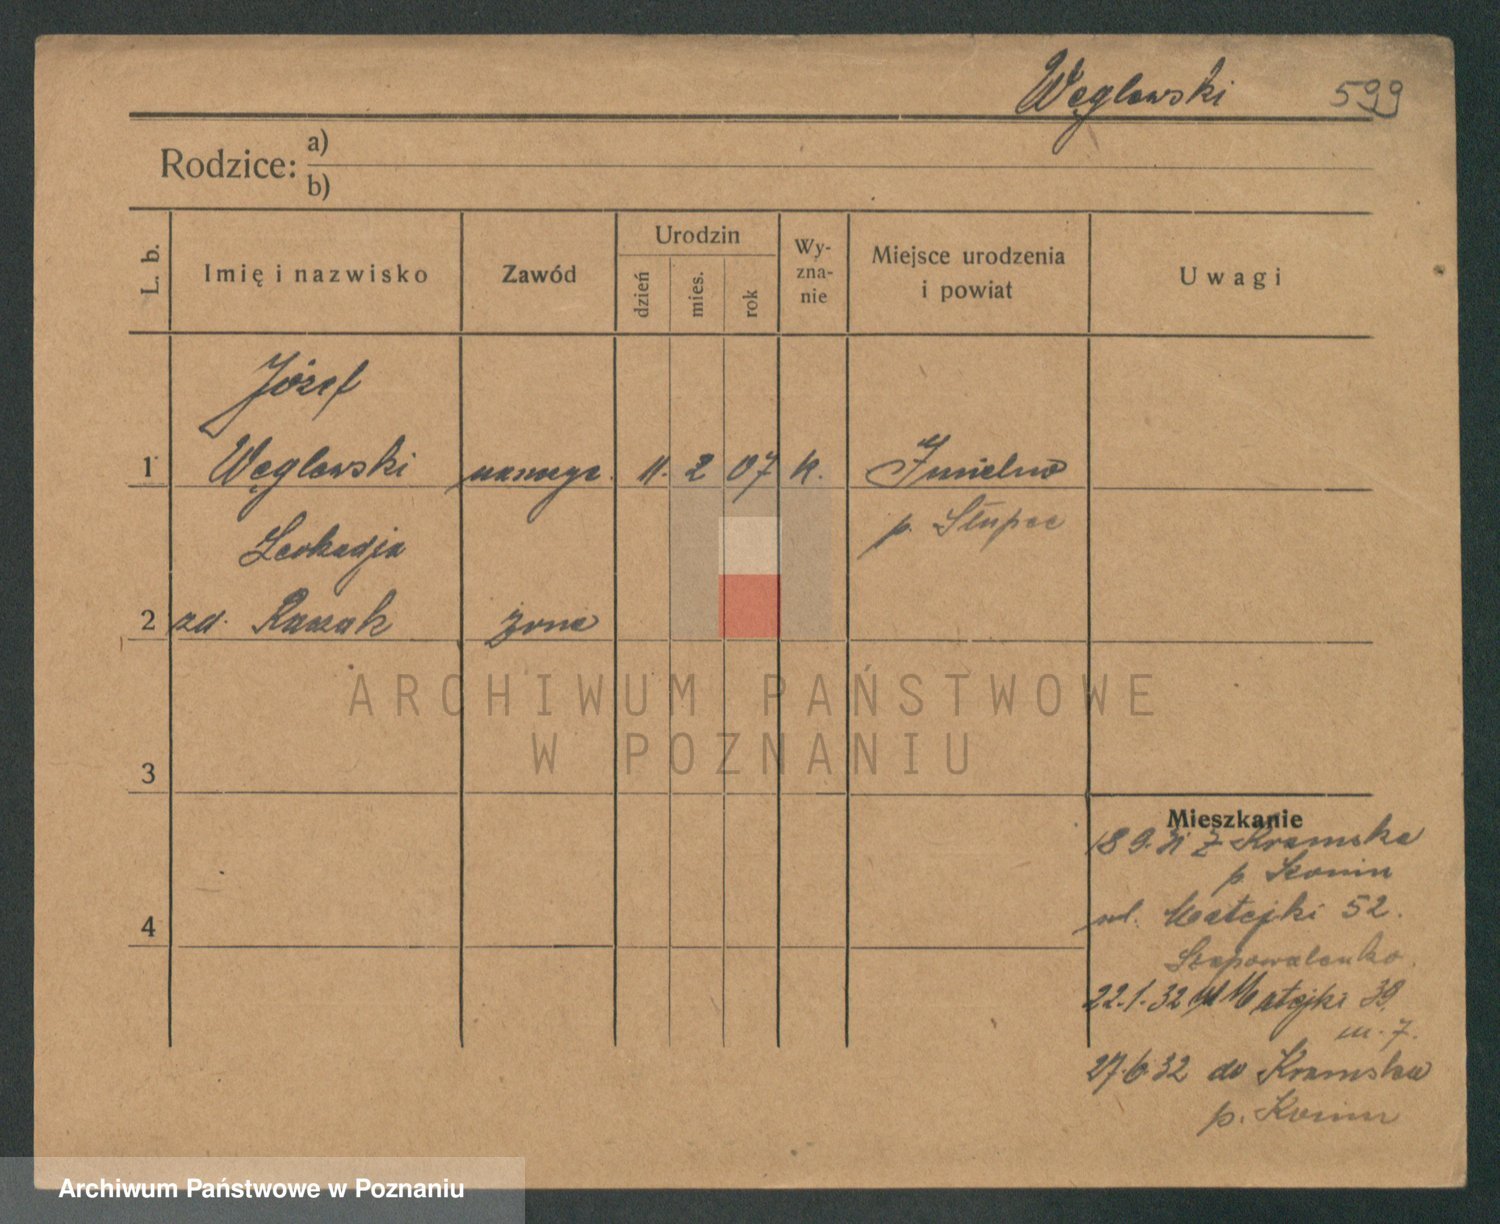 Węglewski 599
Rodzice: a)
b)
L. b.
Imię i nazwisko
Zawód
Urodzin
dzień
mies.
rok
Wy-
zna-
nie
Miejsce urodzenia
i powiat
Uwagi
Józef
1 Węglewski 11. 2 07 k. Imielno
p. Słupca
Leokadja
2 zd. Raszak żona
ARCHIWUM PAŃSTWOWE
W POZNANIU
3
Mieszkanie
18 9. 31 z Kramska
p. Konin
4
ul. Matejki 52.
22.1.32 ul Matejki 39
m. 7.
27.6.32 do Kramska
p. Konin
Archiwum Państwowe w Poznaniu